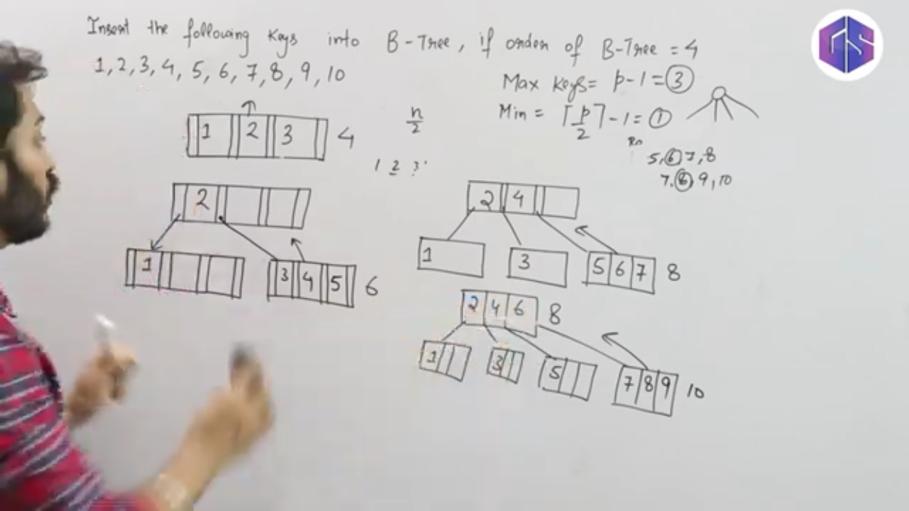 Insert the following Keys into B-Tree, if order of B-Tree = 4
1, 2, 3, 4, 5, 6, 7, 8, 9, 10
Max Keys = p-1 = 3
Min = ⌈p/2⌉-1 = 1
n/2
1 2 3 4
1 2 3
5, 6, 7, 8
7, 8, 9, 10
2
1
3 4 5 6
2 4
1
3
5 6 7 8
2 4 6 8
1
3
5
7 8 9 10